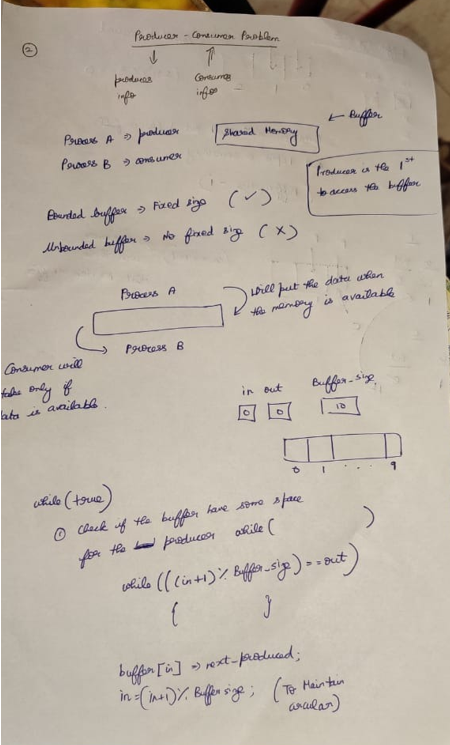 ②
Producer - Consumer Problem
↓ ↑
produces Consumes
info info
← Buffer
Process A → producer
Shared Memory
Process B → consumer
Producer is the 1st
to access the buffer
Bounded buffer → Fixed size (✓)
Unbounded buffer → No fixed size (✗)
Process A
Will put the data when
the memory is available
Process B
Consumer will
take only if
data is available.
in out Buffer-size
0 0 10
0 1 . . . 9
while(true)
① Check if the buffer have some space
for the producer while( )
while(((in+1)% Buffer-size) == out)
{ }
buffer[in] → next-produced;
in = (in+1)% Buffer size; (To Maintain
circular)